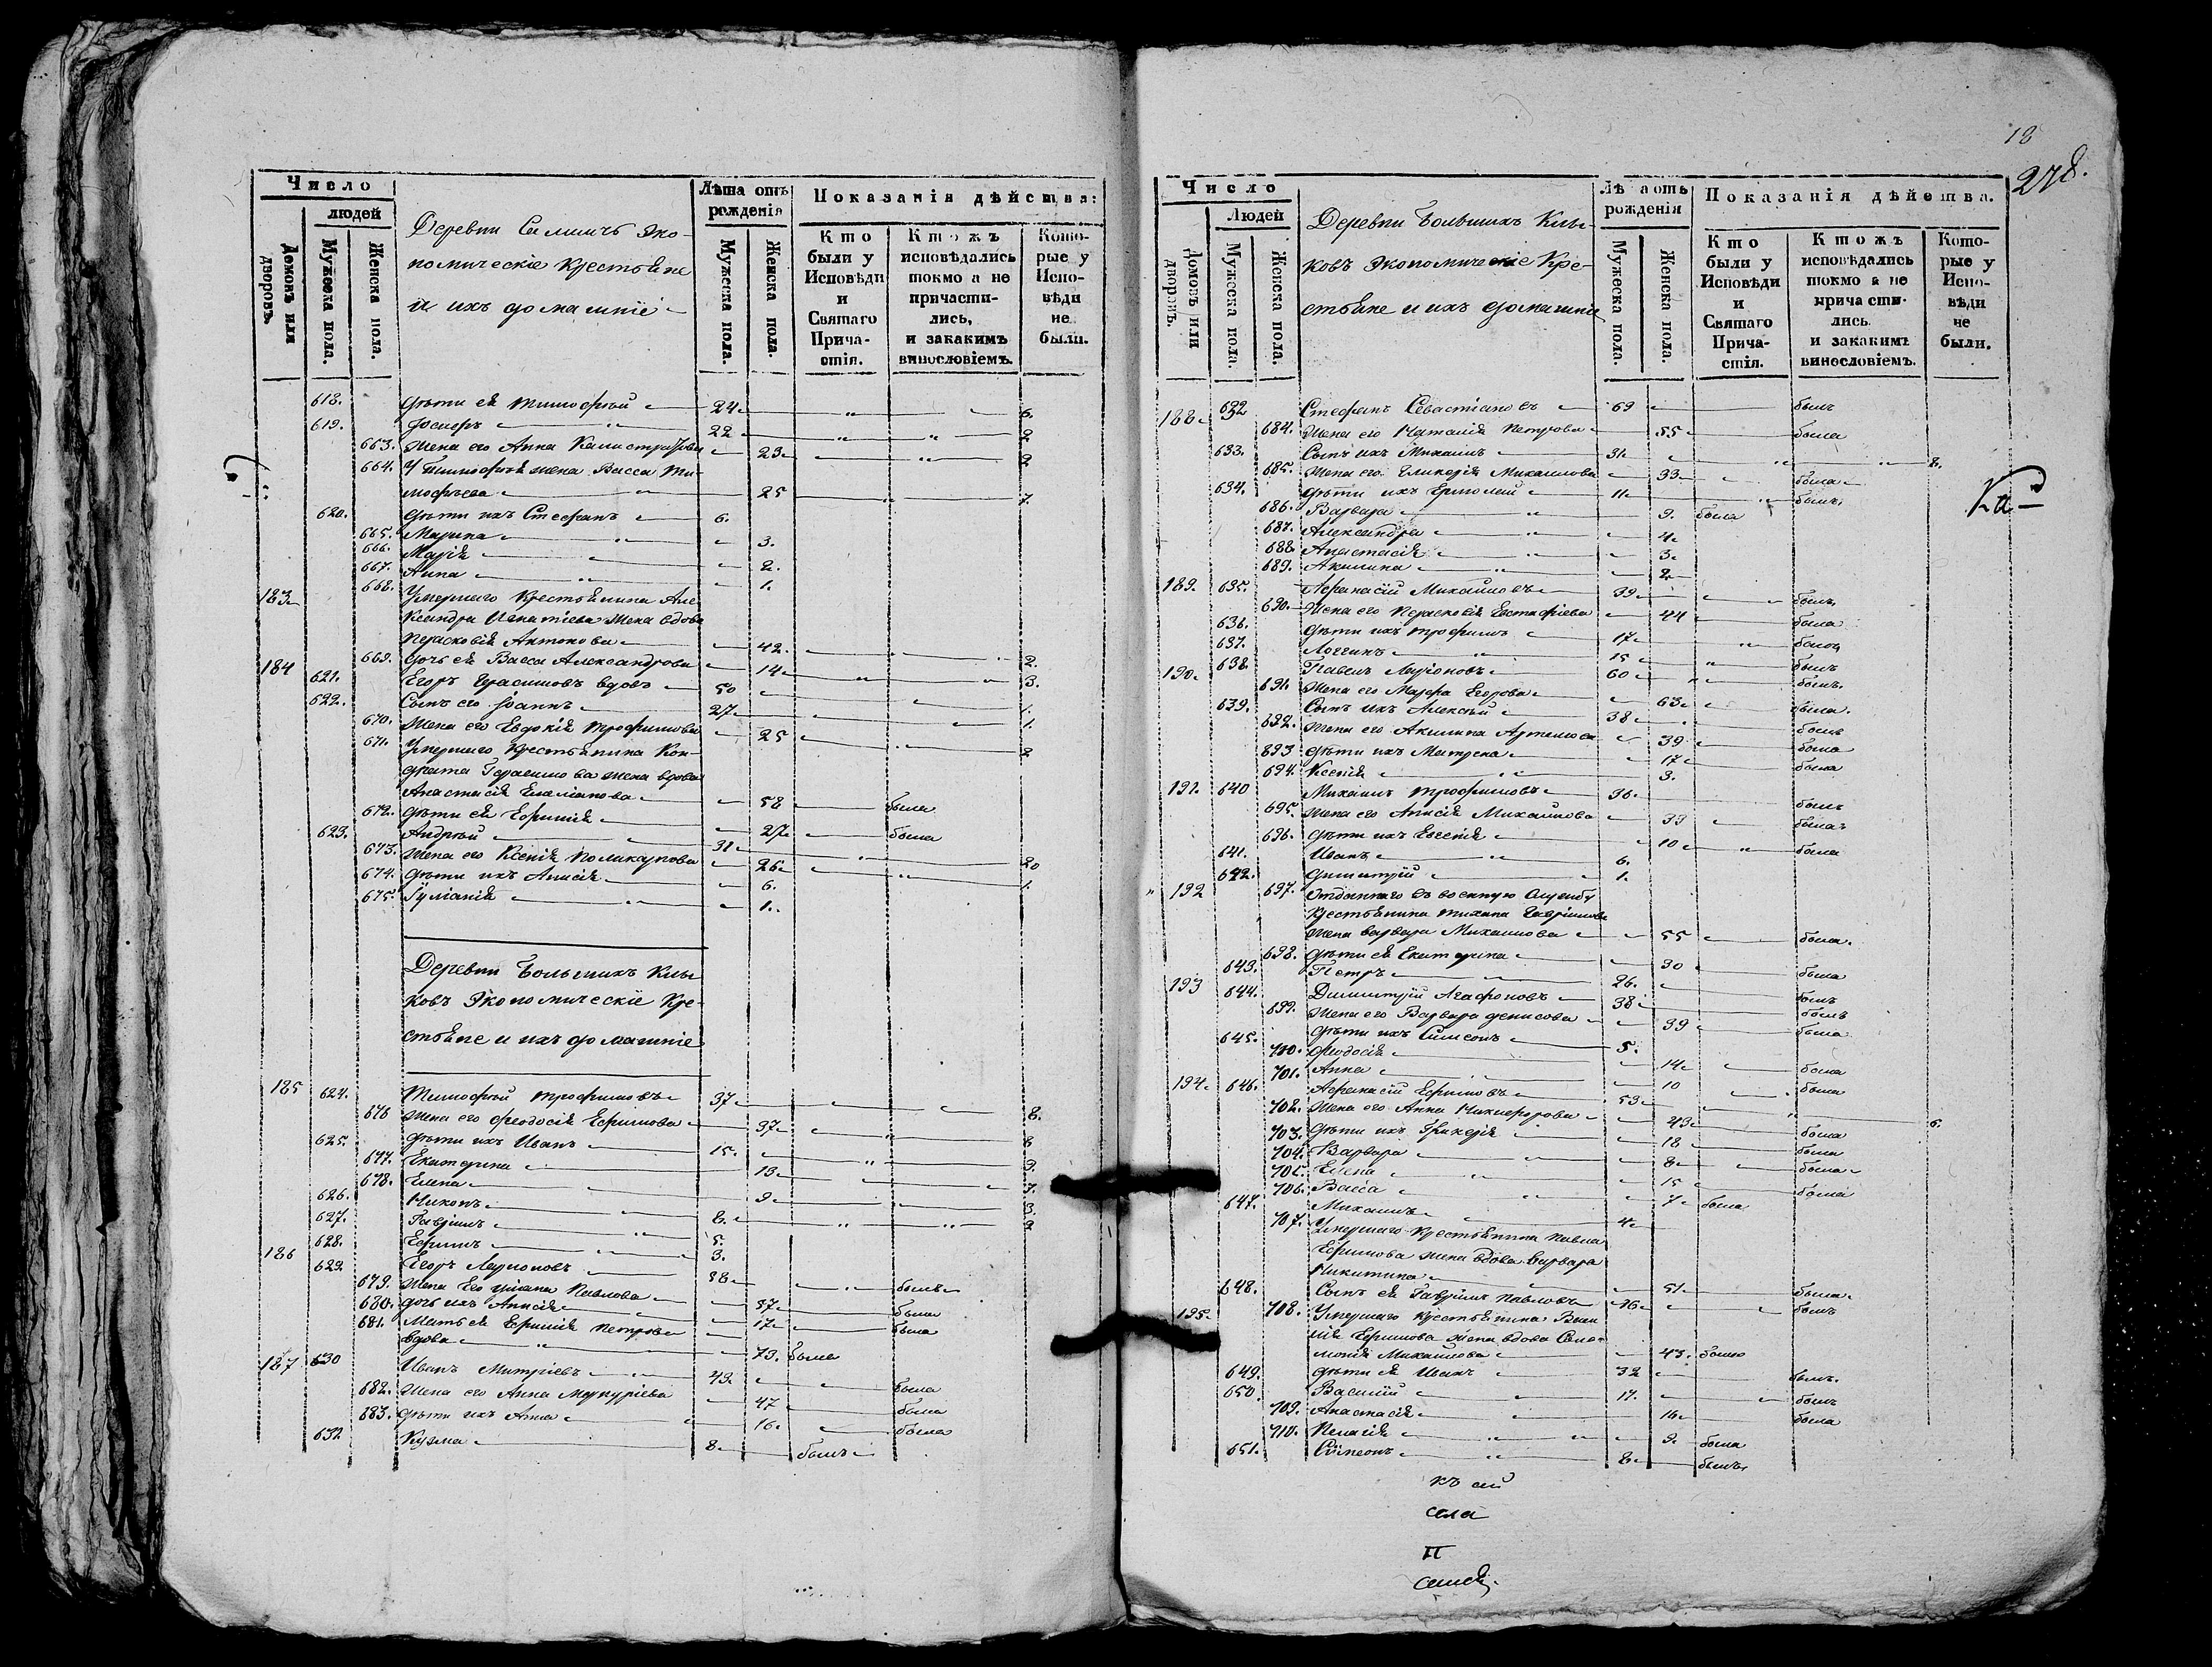 Число
людей
Домовъ или дворовъ.
Мужеска пола.
Женска пола.
Деревни Эко-
номическіе Крестьяне
и ихъ домашніе
Лѣта отъ рожденія
Мужеска пола.
Женска пола.
Показанія дѣйства:
Кто были у Исповѣди и Святаго Причастія.
Ктожъ исповѣдались токмо а не причасти-лись, и закакимъ винословіемъ.
Кото-рые у Испо-вѣди не были.
618. дѣти ея Тимофѣй 24 6.
619. Іосифъ 22 2
663. Жена его Анна Калистратова 23 2
664. У Тимофѣя жена Васса Ти-
мофѣева 25 7.
620. дѣти ихъ Стефанъ 6.
665. Марина 3.
666. Марія 2.
667. Анна 1.
183 668. Умершаго Крестьянина Але-
ксандра Игнатіева жена вдова
Парасковія Антонова 42. 2.
669. дочь ея Васса Александрова 14 3.
184 621. Егоръ Герасимовъ вдовъ 50 1.
622. Сынъ его Іоаннъ 27 1.
670. Жена его Евдокія Трофимова 25 2
671. Умершаго Крестьянина Кон-
драта Герасимова жена вдова
Анастасія Емеліанова 58 была
672. дѣти ея Ефимія 27 была
623. Андрѣй 31 20
673. Жена его Ксенія Поликарпова 26 1.
674. дѣти ихъ Анисія 6.
675. Іуліанія 1.
Деревни Большихъ Клы-
ковъ Экономическіе Кре-
стьяне и ихъ домашніе
185 624. Тимофѣй Трофимовъ 37 8.
676 Жена его Феодосія Ефимова 37 8
625. дѣти ихъ Иванъ 15. 9.
677. Екатерина 13 7.
678. Елена 9 3.
626. Никонъ 8. 2
627. Гавріилъ 5.
628. Ефимъ 3.
186 629 Егоръ Ларионовъ 58 былъ
679. Жена Его Павлова 57 была
680. дочь ихъ Анисія 17 была
681. Мать ея Ефимія Петрова
вдова 73. была
187 630 Иванъ Митріевъ 49 былъ
682. Жена его Анна Меркуріева 47 была
683. дѣти ихъ Анна 16. была
631 Кузма 8 былъ
18
278.
Число
Людей
Домовъ или дворовъ.
Мужеска пола.
Женска пола.
Деревни Большихъ Клы-
ковъ Экономическіе Кре-
стьяне и ихъ домашніе
Лѣта отъ рожденія
Мужеска пола.
Женска пола.
Показанія дѣйства.
Кто были у Исповѣди и Святаго Прича-стія.
Ктожъ исповѣдались токмо а не прича сти-лись. и закакимъ винословіемъ.
Кото-рые у Испо-вѣди не были.
188 632 Стефанъ Севастіановъ 69 былъ
684. Жена его Наталія Петрова 55 была
633. Сынъ ихъ Михаилъ 31. 8.
685. Жена его Гликерія Михаилова 33 была
634. дѣти ихъ Ермолай 11 былъ
686. Варвара 9. была
687. Александра 4
688 Анастасія 3
689. Акилина 2
189. 635. Афанасій Михайловъ 39 былъ
690. Жена его Парасковія Евстафіева 44 была
636. дѣти ихъ Трофимъ 17 былъ
637. Логгинъ 15 былъ
190 638 Павелъ Ларіоновъ 60 былъ
691. Жена его Марфа Егорова 63 была.
639. Сынъ ихъ Алексѣй 38 былъ
692. Жена его Акилина Артемова 39 была
693 дѣти ихъ Матрена 17 была
694. Ксенія 3.
191. 640 Михаилъ Трофимовъ 36. былъ
695. Жена его Анисія Михаилова 39 была
696. дѣти ихъ Евгенія 10 была
641. Иванъ 6.
642. Димитрій 1.
192 697. Отданнаго въ военную службу
Крестьянина Тихана Гавріилова
жена Варвара Михаилова 55 была.
698. дѣти ея Екатерина 30 была
643. Петръ 26. былъ
193 644. Димитрій Агафоновъ 38 былъ
699. Жена его Варвара Денисова 39 была
645. дѣти ихъ Симеонъ 5.
700. Феодосія 14 была
701. Анна 10 была
194. 646. Афанасій Ефимовъ 53 6.
702. Жена его Анна Никифорова 43 была
703. дѣти ихъ Гликерія 18 была
704. Варвара 8 была
705. Елена 15 была
706. Васса 7 была
647. Михаилъ 4
707. Умершаго Крестьянина Павла
Ефимова жена вдова Варвара
Никитина 51 была.
648. Сынъ ея Гавріилъ Павловъ 16 былъ
195. 708. Умершаго Крестьянина Васи
лія Ефимова жена вдова Соло-
монія Михайлова 43. была
649. дѣти ея Иванъ 32 былъ.
650. Василій 17. былъ
709. Анастасія 16 была
710. Пелагія 9. была
651. Симеонъ 8 былъ
Ка
къ сей
села
П